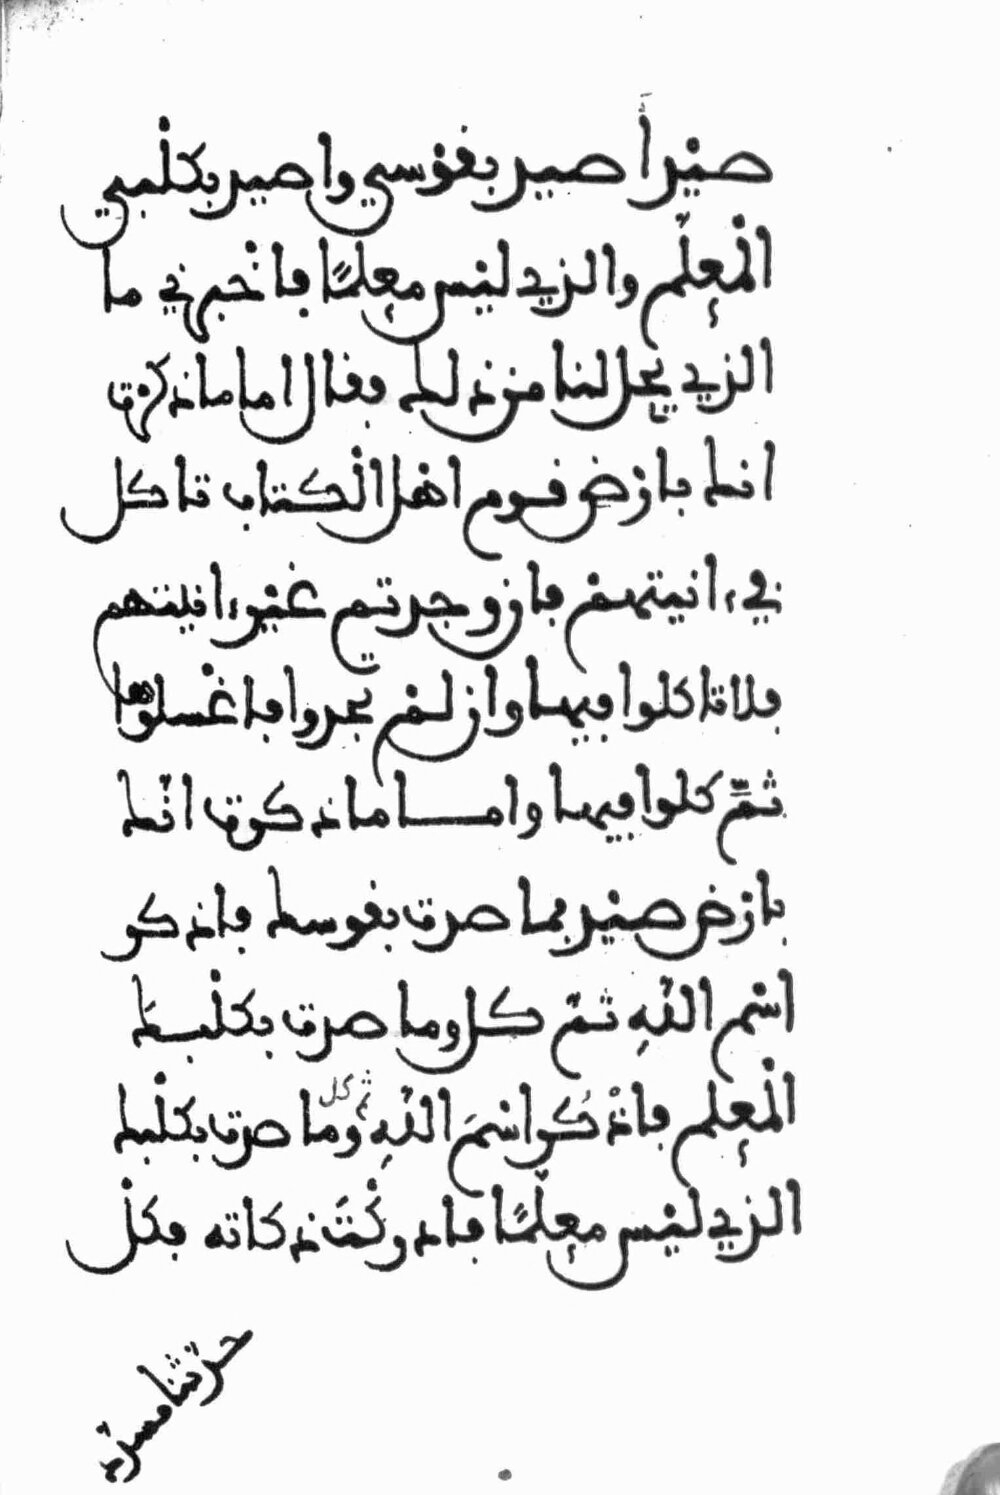 صيد أصيد بقوسي واصيد بكلبي
المعلم والذي ليس معلما فاخبرني ما
الذي يحل لنا من ذلك فقال اما ما ذكرت
انك بارض قوم اهل الكتاب تاكل
في ءانيتهم فان وجدتم غير ءانيتهم
فلا تاكلوا فيها وان لم يجدوا فاغسلوها
ثم كلوا فيها واما ما ذكرت انك
بارض صيد بما صدت بقوسك فاذكر
اسم الله ثم كل وما صدت بكلبك
المعلم فاذكر اسم الله ثم كل وما صدت بكلبك
الذي ليس معلما فادركت ذكاته فكل
حدثنا مسدد